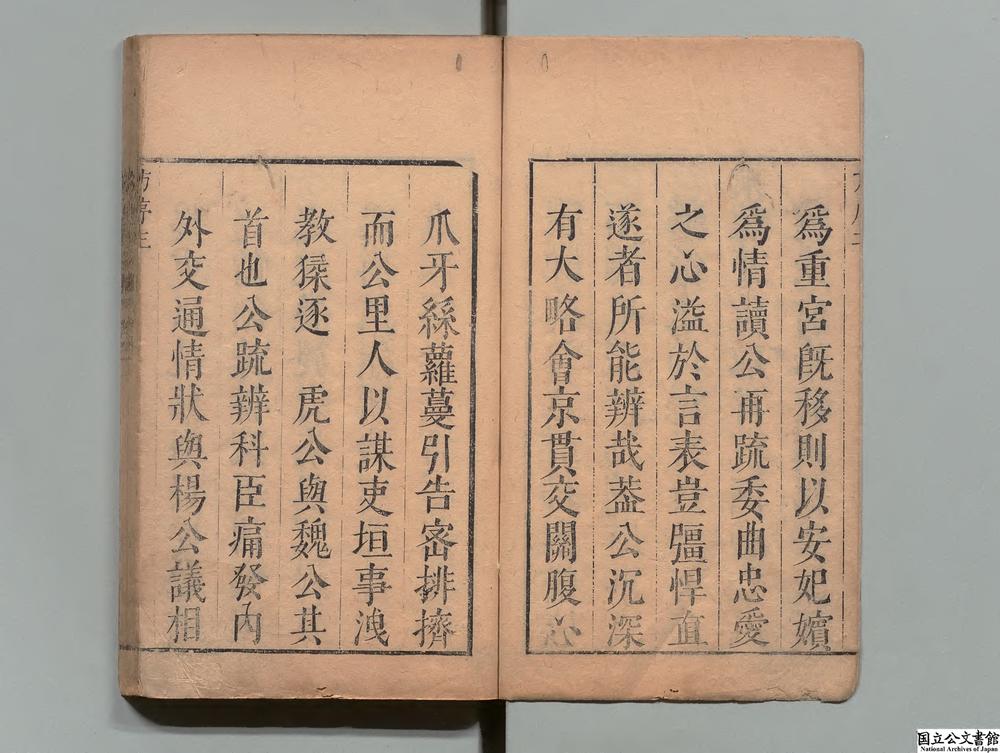 爲重宮旣移則以安妃嬪
爲情讀公再疏委曲忠愛
之心溢於言表豈彊悍直
遂者所能辨哉葢公沉深
有大略會京貫交關腹心
爪牙絲蘿蔓引告密排擠
而公里人以謀吏垣事洩
教猱逐 虎公與魏公其
首也公疏辨科臣痛發內
外交通情狀與楊公議相
国立公文書館
National Archives of Japan